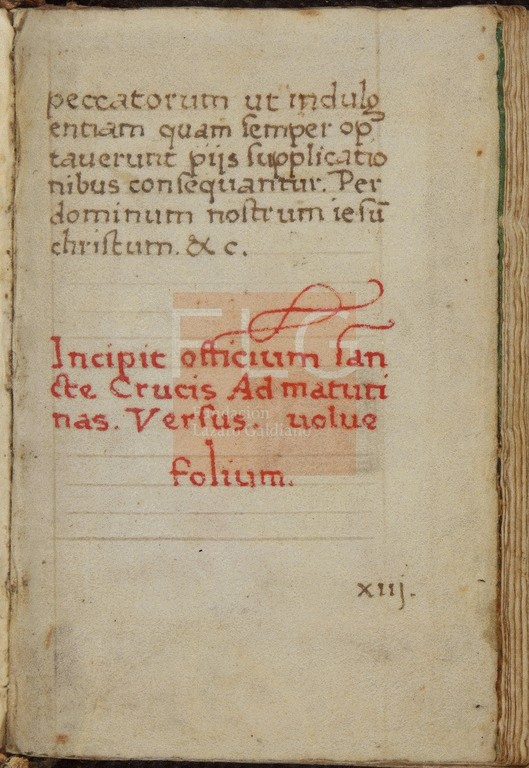 peccatorum ut indulg
entiam quam semper op
tauerunt pijs supplicatio
nibus consequantur. Per
dominum nostrum iesū
christum. & c.
Incipit officium san
cte Crucis Ad matuti
nas. Versus. uolue
folium.
FLG
Fundación
Lázaro Galdiano
xiij.